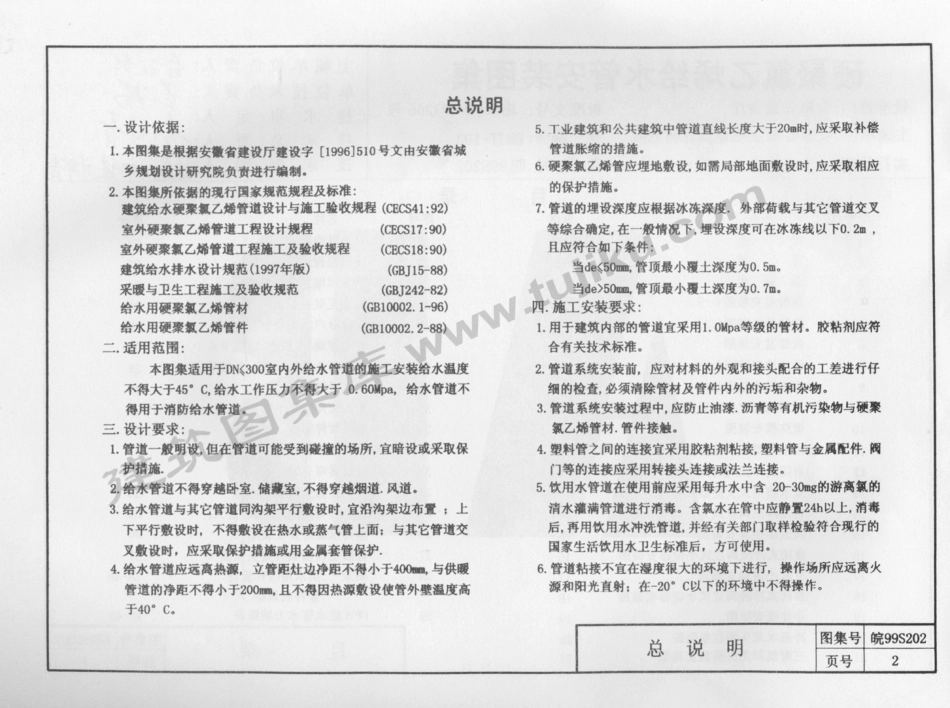 总说明
一. 设计依据:
1. 本图集是根据安徽省建设厅建设字 [1996]510 号文由安徽省城
乡规划设计研究院负责进行编制。
2. 本图集所依据的现行国家规范规程及标准:
建筑给水硬聚氯乙烯管道设计与施工验收规程 (CECS41:92)
室外硬聚氯乙烯管道工程设计规程 (CECS17:90)
室外硬聚氯乙烯管道工程施工及验收规程 (CECS18:90)
建筑给水排水设计规范(1997年版) (GBJ15-88)
采暖与卫生工程施工及验收规范 (GBJ242-82)
给水用硬聚氯乙烯管材 (GB10002.1-96)
给水用硬聚氯乙烯管件 (GB10002.2-88)
二. 适用范围:
本图集适用于DN≤300室内外给水管道的施工安装给水温度
不得大于45° C,给水工作压力不得大于 0.60Mpa, 给水管道不
得用于消防给水管道。
三. 设计要求:
1. 管道一般明设,但在管道可能受到碰撞的场所,宜暗设或采取保
护措施.
2. 给水管道不得穿越卧室.储藏室,不得穿越烟道.风道。
3. 给水管道与其它管道同沟架平行敷设时,宜沿沟架边布置 ; 上
下平行敷设时, 不得敷设在热水或蒸气管上面; 与其它管道交
叉敷设时, 应采取保护措施或用金属套管保护.
4. 给水管道应远离热源, 立管距灶边净距不得小于400mm,与供暖
管道的净距不得小于200mm,且不得因热源敷设使管外壁温度高
于40° C。
5. 工业建筑和公共建筑中管道直线长度大于20m时,应采取补偿
管道胀缩的措施。
6. 硬聚氯乙烯管应埋地敷设,如需局部地面敷设时,应采取相应
的保护措施。
7. 管道的埋设深度应根据冰冻深度. 外部荷载与其它管道交叉
等综合确定,在一般情况下,埋设深度可在冰冻线以下0.2m ,
且应符合如下条件:
当de≤50mm,管顶最小覆土深度为0.5m。
当de>50mm,管顶最小覆土深度为0.7m。
四. 施工安装要求:
1. 用于建筑内部的管道宜采用1.0Mpa等级的管材。胶粘剂应符
合有关技术标准。
2. 管道系统安装前, 应对材料的外观和接头配合的工差进行仔
细的检查,必须清除管材及管件内外的污垢和杂物。
3. 管道系统安装过程中,应防止油漆.沥青等有机污染物与硬聚
氯乙烯管材.管件接触。
4. 塑料管之间的连接宜采用胶粘剂粘接,塑料管与金属配件.阀
门等的连接应采用转接头连接或法兰连接。
5. 饮用水管道在使用前应采用每升水中含 20-30mg的游离氯的
清水灌满管道进行消毒。含氯水在管中应静置24h以上,消毒
后,再用饮用水冲洗管道,并经有关部门取样检验符合现行的
国家生活饮用水卫生标准后, 方可使用。
6. 管道粘接不宜在湿度很大的环境下进行, 操作场所应远离火
源和阳光直射; 在-20° C以下的环境中不得操作。
总 说 明
图集号 皖99S202
页号 2
建筑图集库 www.tujiku.com